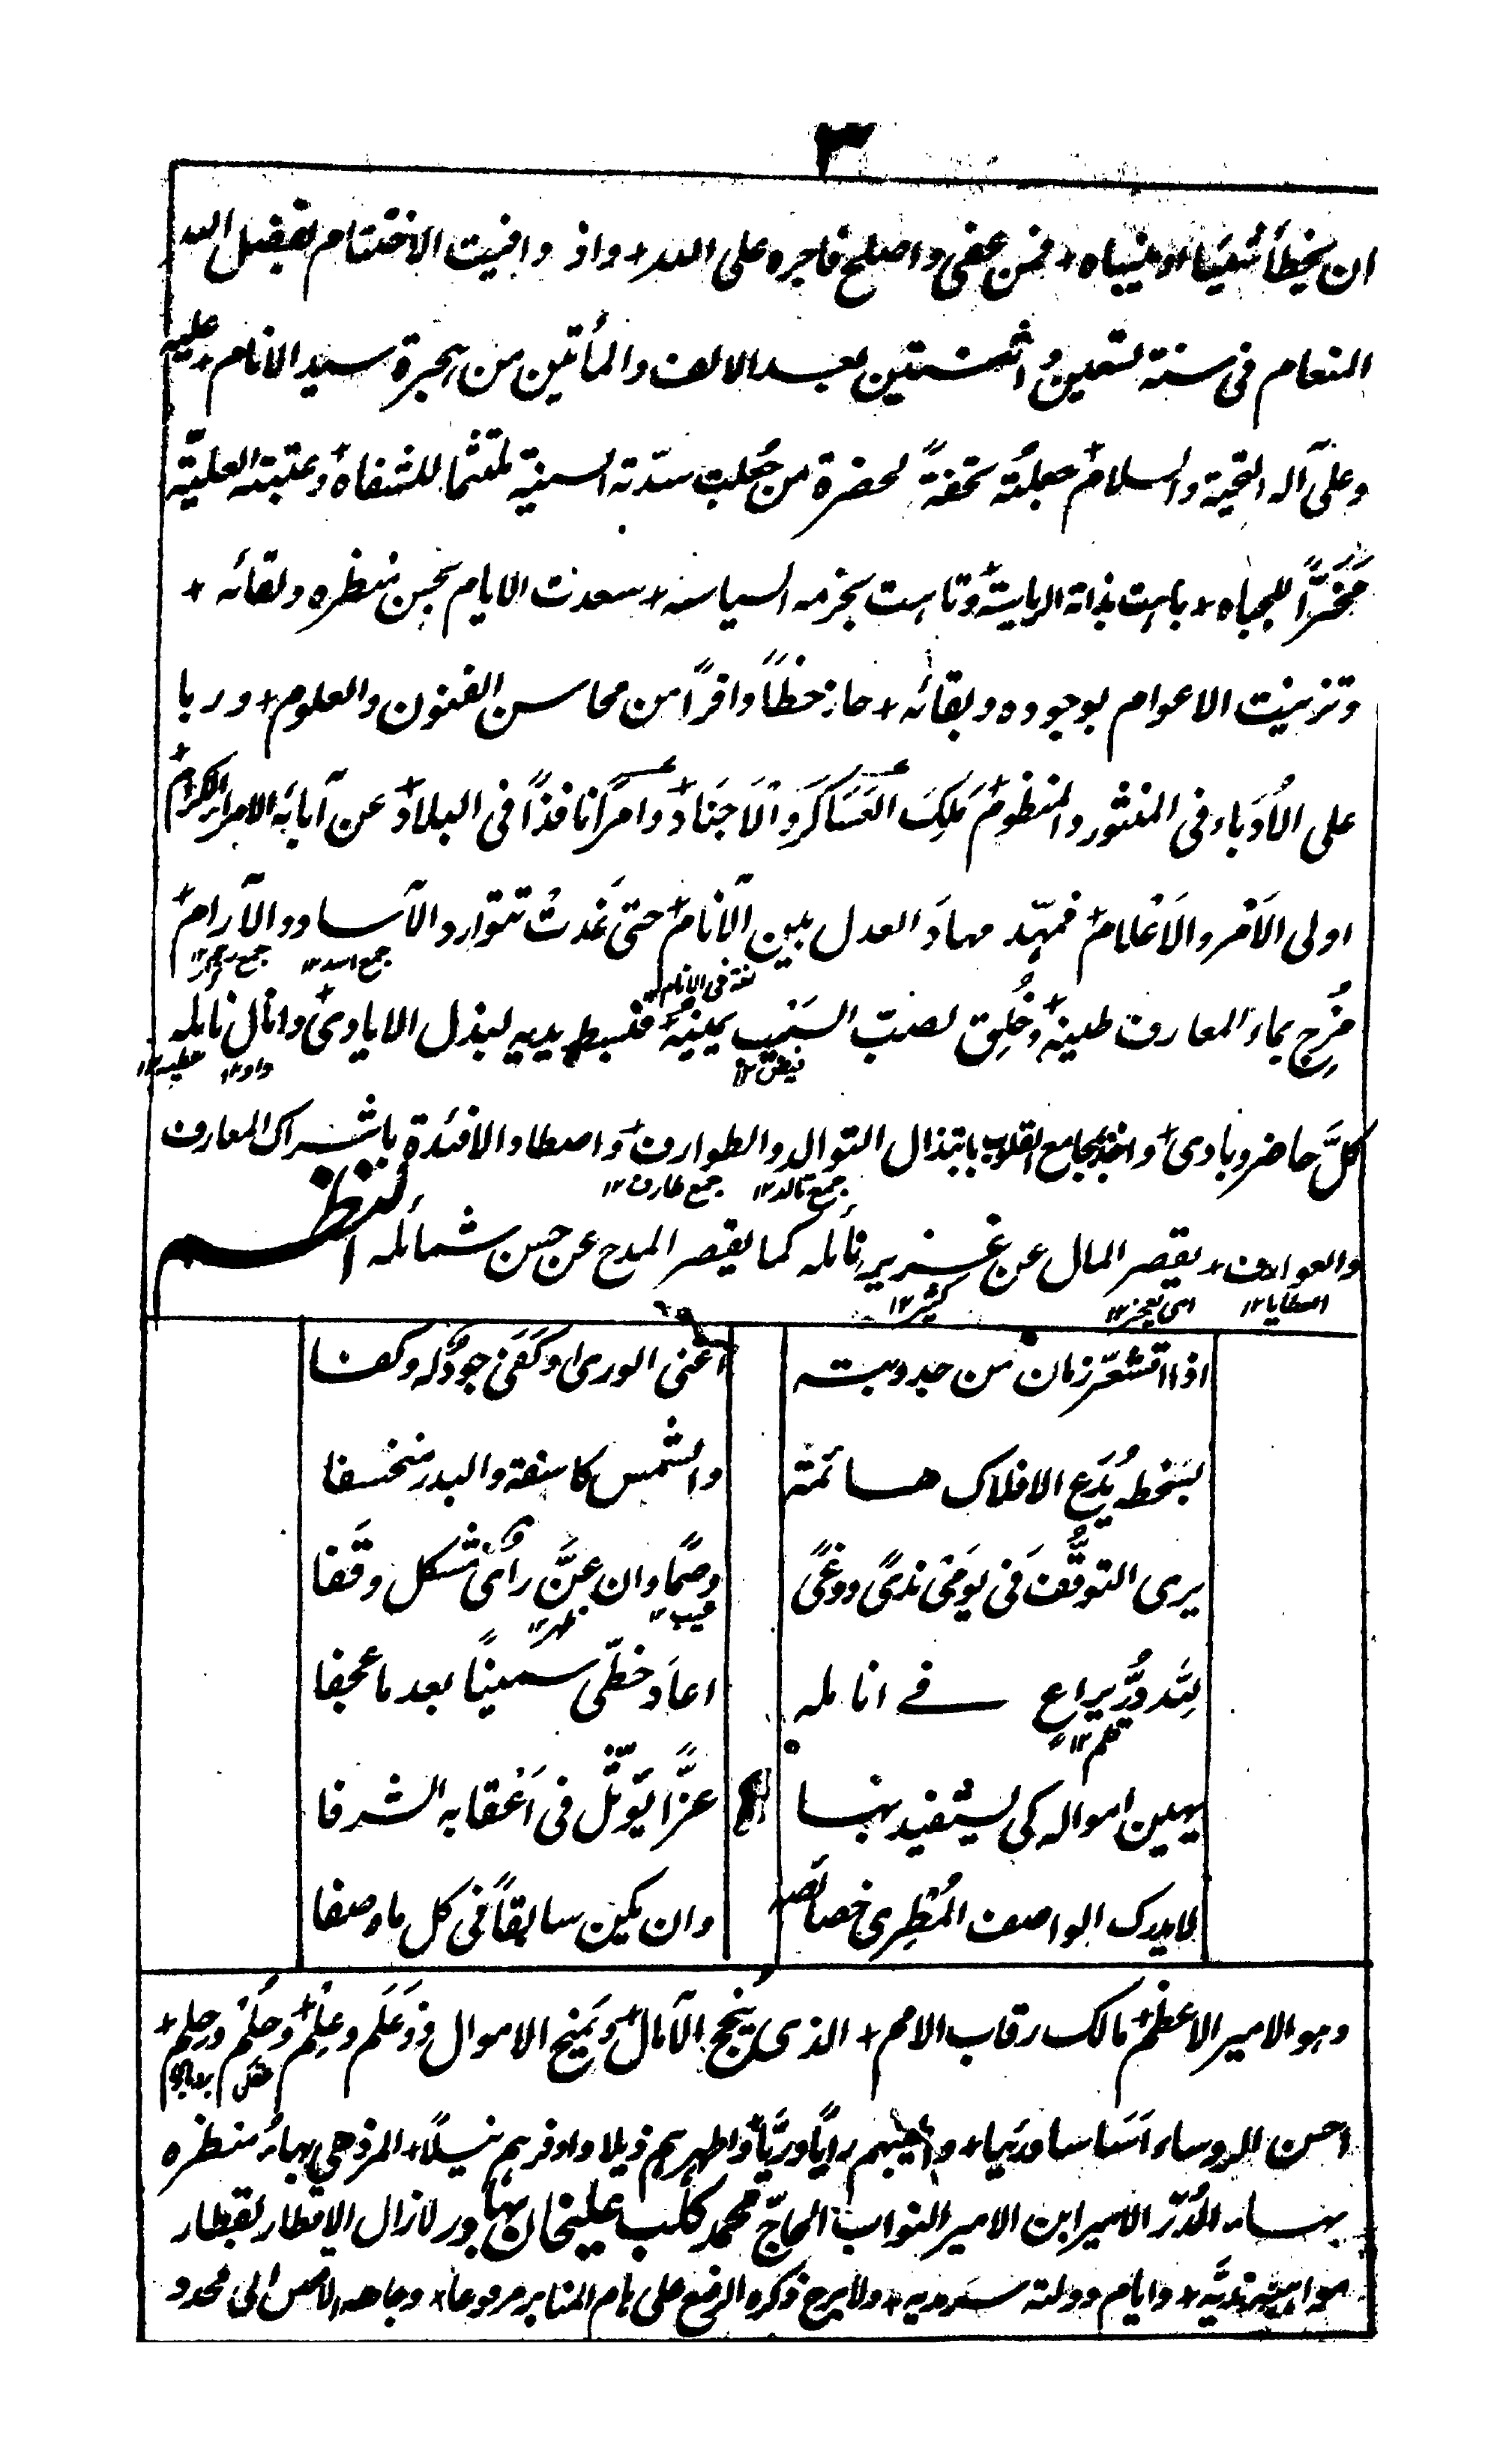 ٣
ان يخطأ شيئا او ينساه + فمن عفى واصلح فاجره على الله + واذ وافيت الاختتام بفضل الله
المنعام فى سنة تسعين واثنتين بعد الالف والمأتين من هجرة سيد الانام + عليه
وعلى آله التحية والسلام + جعلته تحفةً لحضرة من جُعلت سدّته السنية ملتثما للشفاه + وعتبته العليّة
مَخَرًّا للجباه + باهت بذاته الرياسة + وتاهت بحزمه السياسة + سعدت الايام بحسن منظره ولقائه +
وتزينت الاعوام بوجوده وبقائه + حاز حظًّا وافرًا من محاسن الفنون والعلوم + وربا
على الأُدَباء فى المنثور والمنظوم + مَلِكَ العَسَاكَرَ والاَجنَادَ + وامرًا نافذًا فى البلاد + عن آبائه الامراء الكرام +
اولى الاَمْر والاَعْلام + فمهّد مهادَ العدل بين الآنام + حتى غَدتْ تتوارد الآساد والآرام +
جمع اسد ١٢
لغة فى الانام
مُزِج بماء المعارف طينه + وخُلِق لصبّ السَيْب يمينه + فبسط يديه لبذل الايادى + وانال نائله
فيض ١٢ داد ١٢ عطيه ١٢
كلَّ حاضر وبادى + واخذ بجامع القلوب بابتذال التوالد والطوارف + واصطاد الافئدة باشراك المعارف
جمع تالد ١٢ جمع طارف ١٢
والعوارف + يقصر المال عن غزير نائله كما يقصر المدح عن حسن شمائله النظم
العطايا ١٢ اى يعجز ١٢ كثير ١٢
اذا اقشعّر زمان من جدوبته اغنى الورى وكَفَى جودُه وكفا
بسخطه يُدَع الافلاك هائمة والشمس كاسفة والبدر منخسفا
يرى التوقُّفَ فى يومَىْ ندىً ووغىً وصمًا وان عنَّ رأىٌ مشكل وقَفا
عيب ١٢ ظهر ١٢
لله دُرُّ يراعٍ فے انامله اعاد خطّى سمينًا بعد ما عجفا
قلم ١٢
يهين امواله كى يستفيد بها عزًّا يؤثّل فى اَعْقابه الشرفا
لا يدرك الواصف المُطْرِى خصائصه وان يكن سابقًا فى كل ما وصفا
وهو الامير الاعظم + مالك رقاب الامم + الذى يُنجح الآمال + ويَمنح الاموال ذو عَلَم وعِلْم + وحِلْم +
عقل
احسن الروساء اَسَاسا ورَئيا + رايًا وريًّا + واطهرهم ذيلا واوفرهم نيلًا + المزدهى بهاءُ منظره
بهاء الدُرّ الامير ابن الامير النواب الحاجّ محمد كلب عليخان بهادر لازال الاقطار بقطار
مواهبه نديَّة + وايام دولته سرمديه + ولا برح ذكره الرفيع على هام المنابر مرفوعا + وجاهه